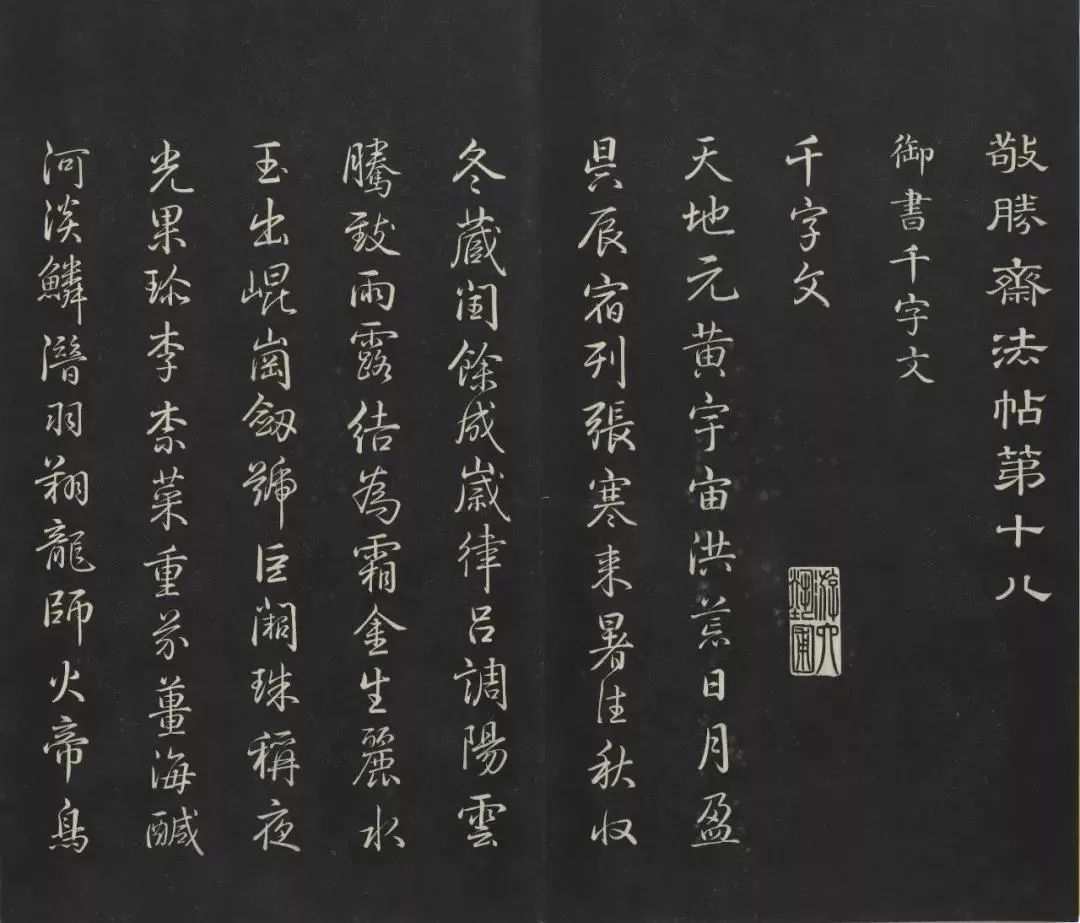 敬勝齋法帖第十八
御書千字文
千字文
天地元黃宇宙洪荒日月盈
昃辰宿列張寒来暑往秋收
冬蔵閏餘成嵗律呂調陽雲
騰致雨露結為霜金生麗水
玉出崐崗劔號巨闕珠稱夜
光果珍李柰菜重芥薑海鹹
河淡鱗潛羽翔龍師火帝鳥